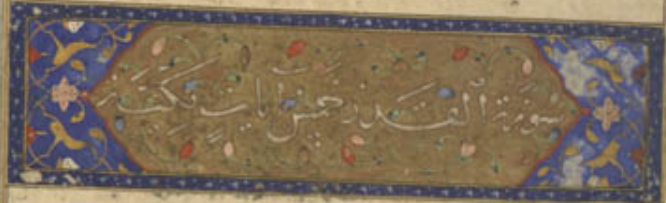 سورة القدر خمس ايات مكية